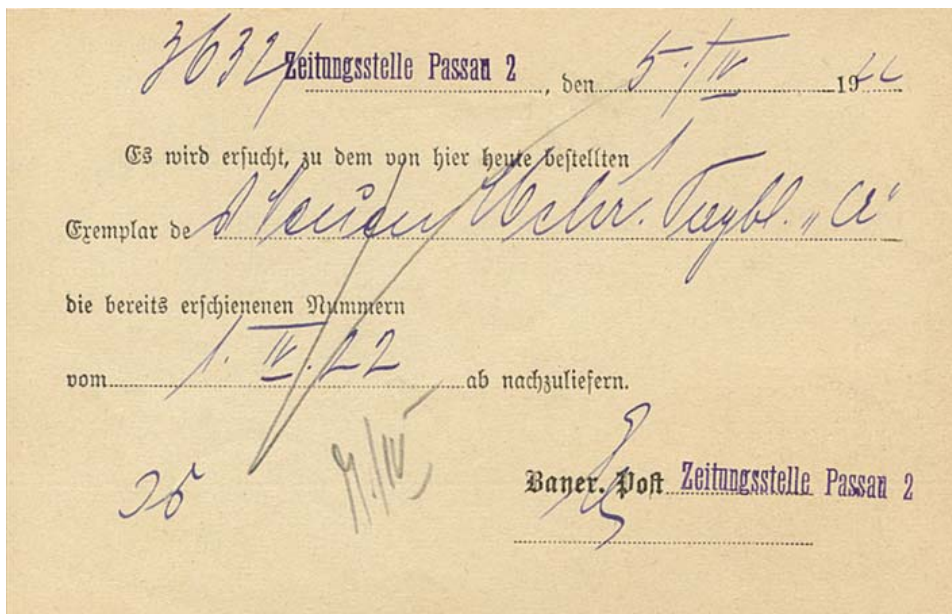 3632 Zeitungsstelle Passau 2, den 5./IV 1922
Es wird ersucht, zu dem von hier heute bestellten
Exemplar de 1 Wehr. Tagbl. „A“
die bereits erschienenen Nummern
vom 1. IV. 22 ab nachzuliefern.
Bayer. Post Zeitungsstelle Passau 2